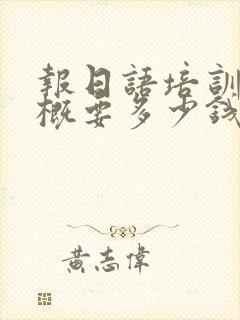 報日語培訓
概要多少錢
黃志偉